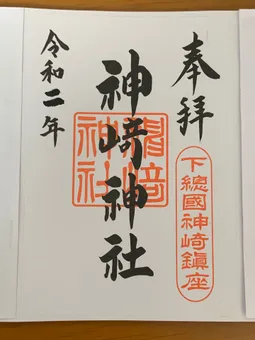 奉拝
下總國神崎鎮座
神﨑神社
﨑
神社
令和二年